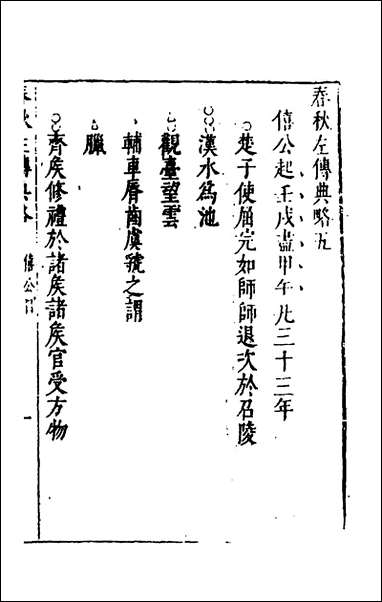 春秋左傳典略五
僖公起壬戌盡甲午凡三十三年
楚子使屈完如師師退次於召陵
漢水為池
觀臺望雲
輔車脣齒虞虢之謂
臘
齊侯修禮於諸侯諸侯官受方物
春秋左傳典略 僖公 一